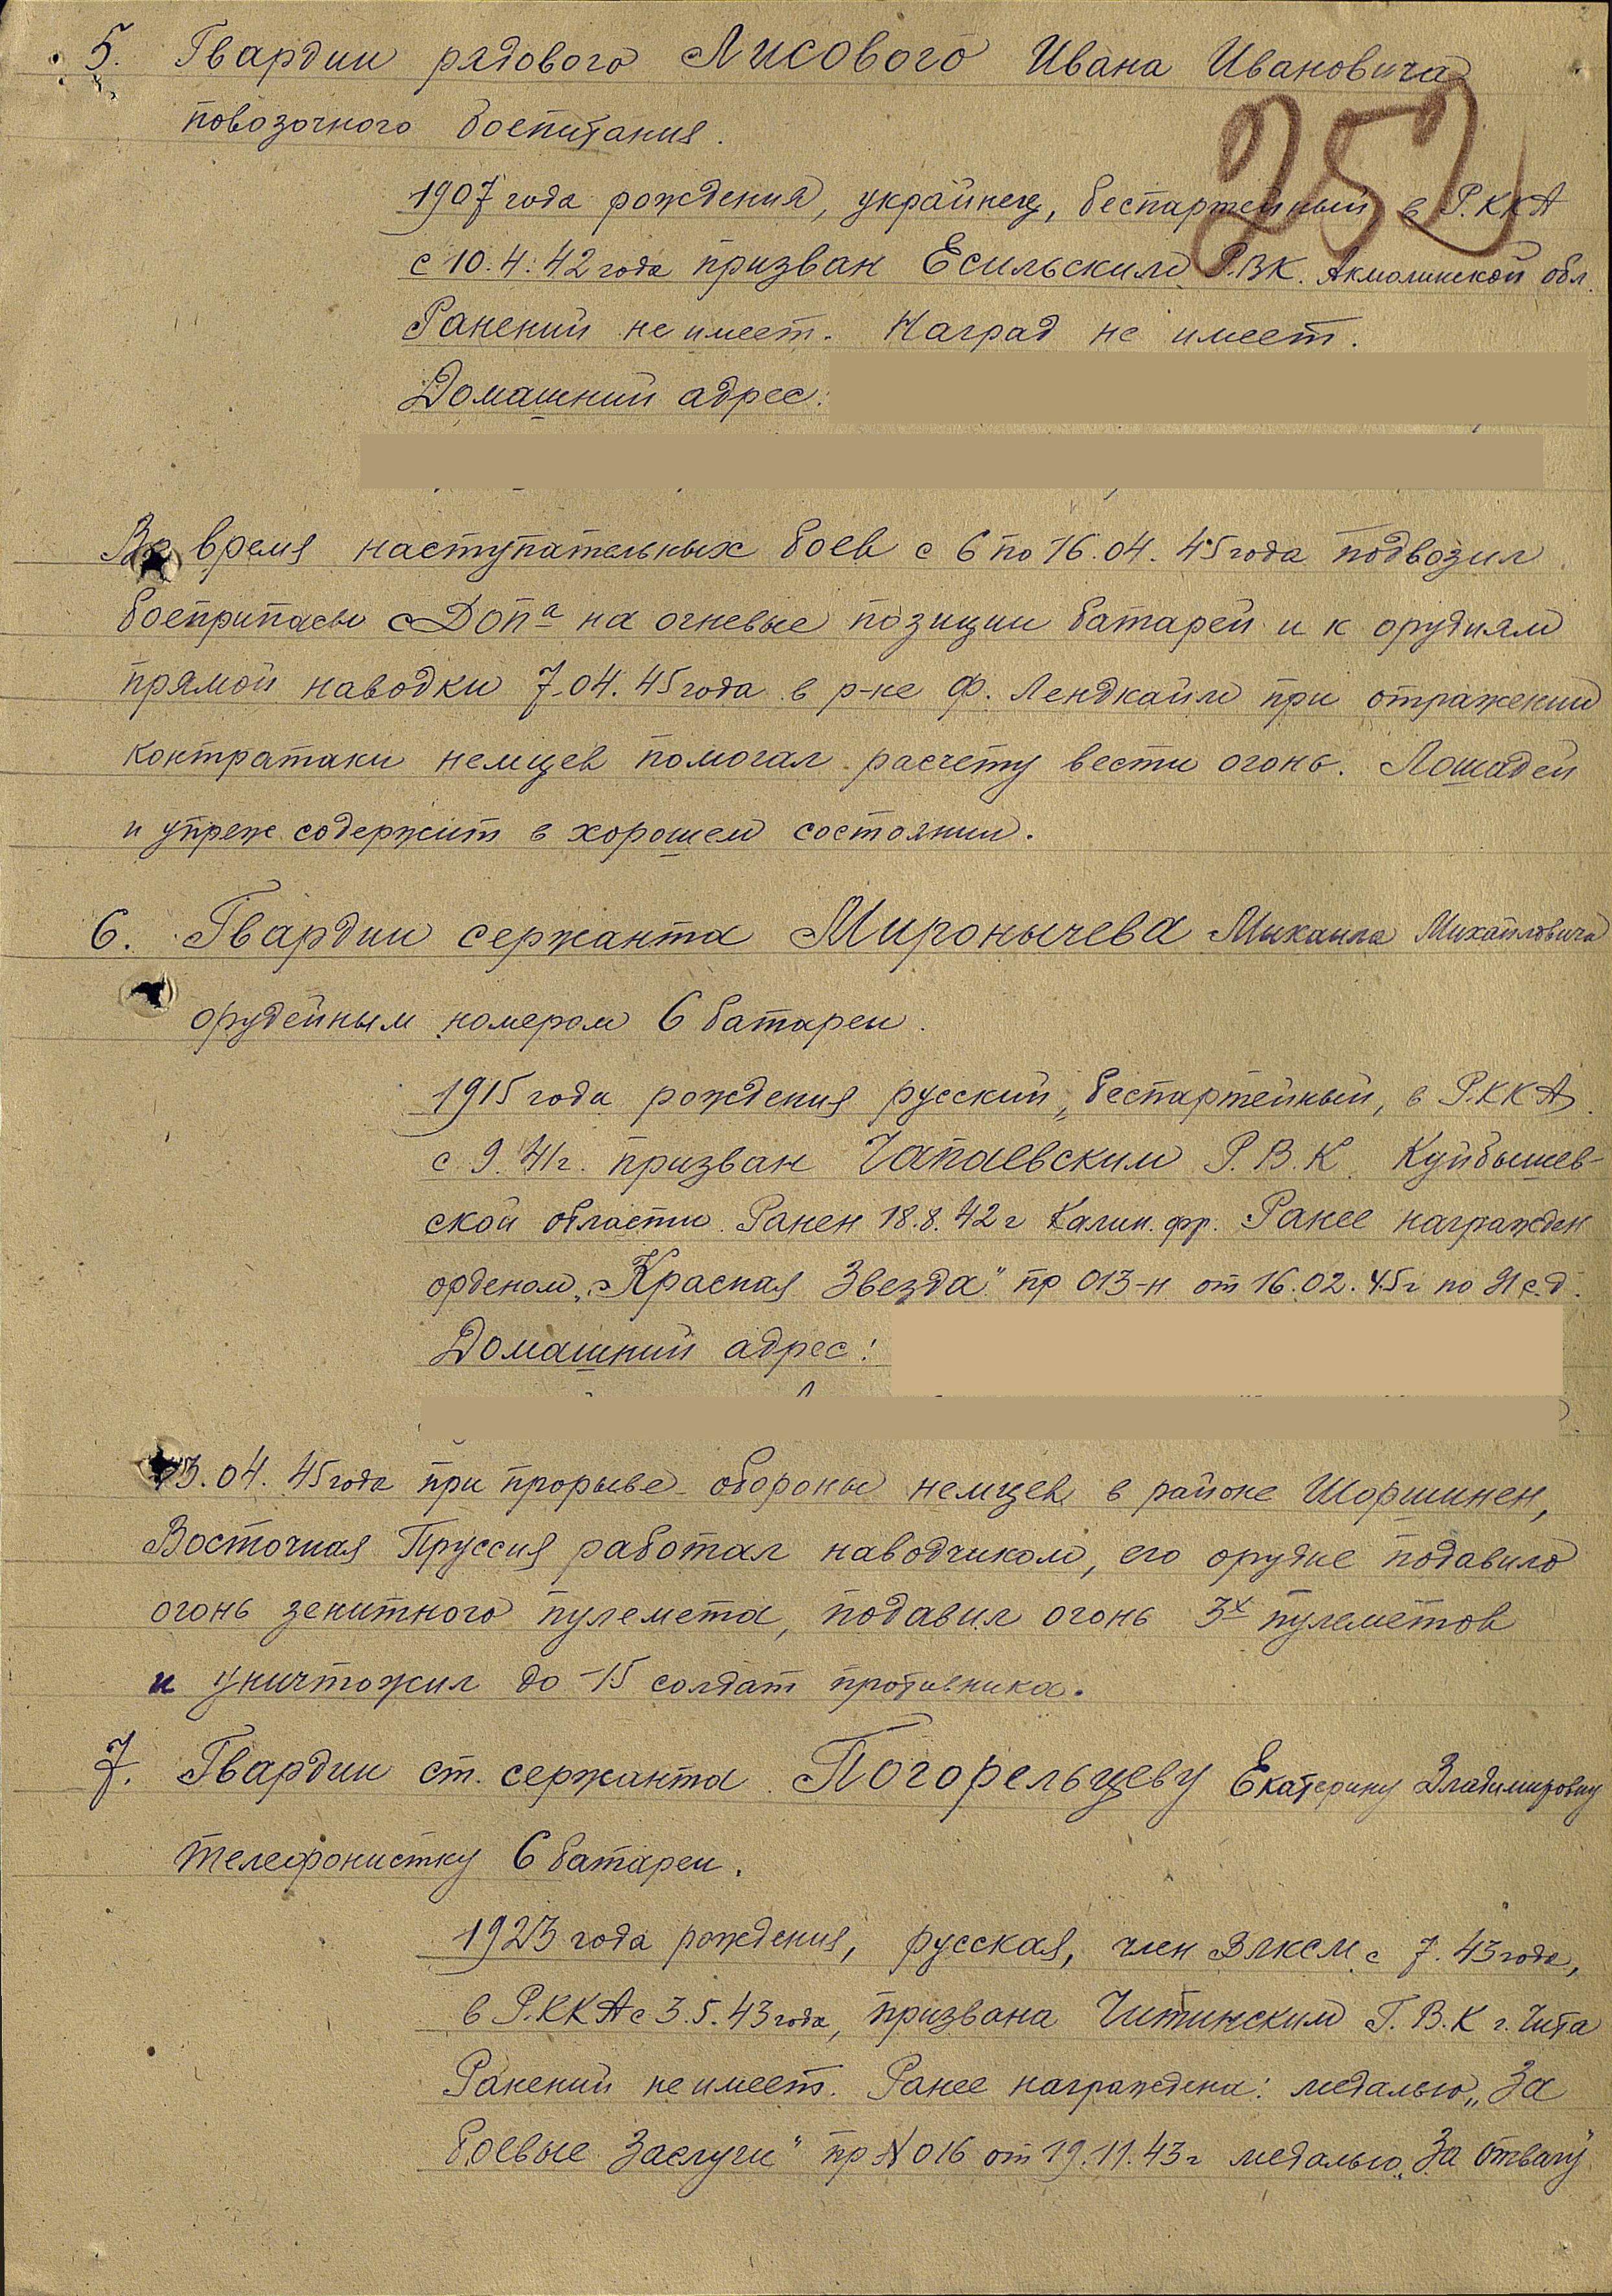 5. Гвардии рядового Лисового Ивана Ивановича
повозочного боепитания.
252
1907 года рождения, украйнец, беспартейный в Р.ККА
с 10.4.42 года призван Есильским Р.ВК. Акмолинской обл.
Ранений не имеет. Наград не имеет.
Домашний адрес:
Во время наступательных боев с 6 по 16.04.45 года подвозил
боеприпасы с ДОПа на огневые позиции батарей и к орудиям
прямой наводки 7.04.45 года в р-не Ф. Лендкайм при отражении
контратаки немцев помогал расчету вести огонь. Лошадей
и упреж содержит в хорошем состоянии.
6. Гвардии сержанта Миронычева Михаила Михайловича
орудейным номером 6 батареи.
1915 года рождения русский, беспартейный, в Р.ККА.
с 9.41г. призван Чапаевским Р.В.К. Куйбышев-
ской области. Ранен 18.8.42г Калин. фр. Ранее награжден
орденом „Красная Звезда" пр 013-н от 16.02.45г по 91 с.д.
Домашний адрес:
13.04.45 года при прорыве обороны немцев в районе Шоршинен,
Восточная Пруссия работал наводчиком, его орудие подавило
огонь зенитного пулемета, подавил огонь 3х пулеметов
и уничтожил до 15 солдат противника.
7. Гвардии ст. сержанта Погорельцеву Екатерину Владимировну
телефонистку 6 батареи.
1923 года рождения, русская, член ВЛКСМ с 7.43 года,
в Р.ККА с 3.5.43 года, призвана Читинским Г.В.К г. Чита
Ранений не имеет. Ранее награждена: медалью „За
боевые заслуги" пр N 016 от 19.11.43г медалью „За отвагу"